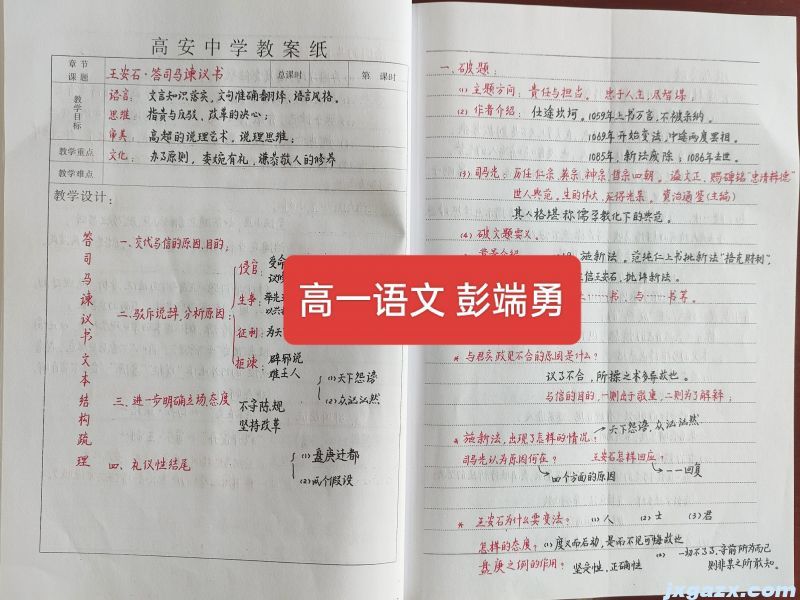 高安中学教案纸
章节
课题
王安石·答司马谏议书
总课时
第 课时
教学目标
语言：文言知识落实，文句准确翻译，语言风格。
思维：指责与反驳，改革的决心；
审美：高超的说理艺术，说理思维；
教学重点
教学难点
文化：
原则，委婉有礼，谦恭敬人的修养
教学设计：
答司马谏议书文本结构疏理
一、交代写信的原因，目的；
二、驳斥说辞，分析原因：
侵官：受命
生事：举先王
征利：为天下
拒谏：辟邪说
难壬人
三、进一步明确立场，态度
不守陈规
坚持改革
(1)天下怨谤
(2)众讼汹然
四、礼仪性结尾
(1)盘庚迁都
(2)两个假设
一、破题：
(1) 主题方向：责任与担当。忠于人主，
(2) 作者介绍：仕途坎坷。1059年上书万言，不被采纳。
1069年开始变法，中途两度罢相。
1085年，新法废除；1086年去世。
(3) 司马光：历任仁宗、英宗、神宗、哲宗四朝。谥文正、赐碑铭"忠清粹德"
世人典范。生的伟大，死得光荣。资治通鉴(主编)
其人格堪称儒学教化下的典范。
(4) 破文题意义。
施新法。范纯仁上书批新法"掊克财利"，
信王安石，批评新法。
书，与……书等。
* 与君实政见不合的原因是什么？
议事不合，所操之术多异故也。
写信的目的，一则出于敬重，二则为了解释；
* 施新法，出现了怎样的情况？
天下怨谤，众讼汹然
司马光认为原因何在？
王安石怎样回应？
四个方面的原因
一一回复
* 王安石为什么要变法？ (1) 人 (2) 士 (3) 君
怎样的态度？(1) 度义而后动，是而不见可悔故也
(2) 一切不事事，守前所为而已
则非某之所敢知。
盘庚之例的作用？ 坚定性，正确性
高一语文 彭端勇
jxgazx.com